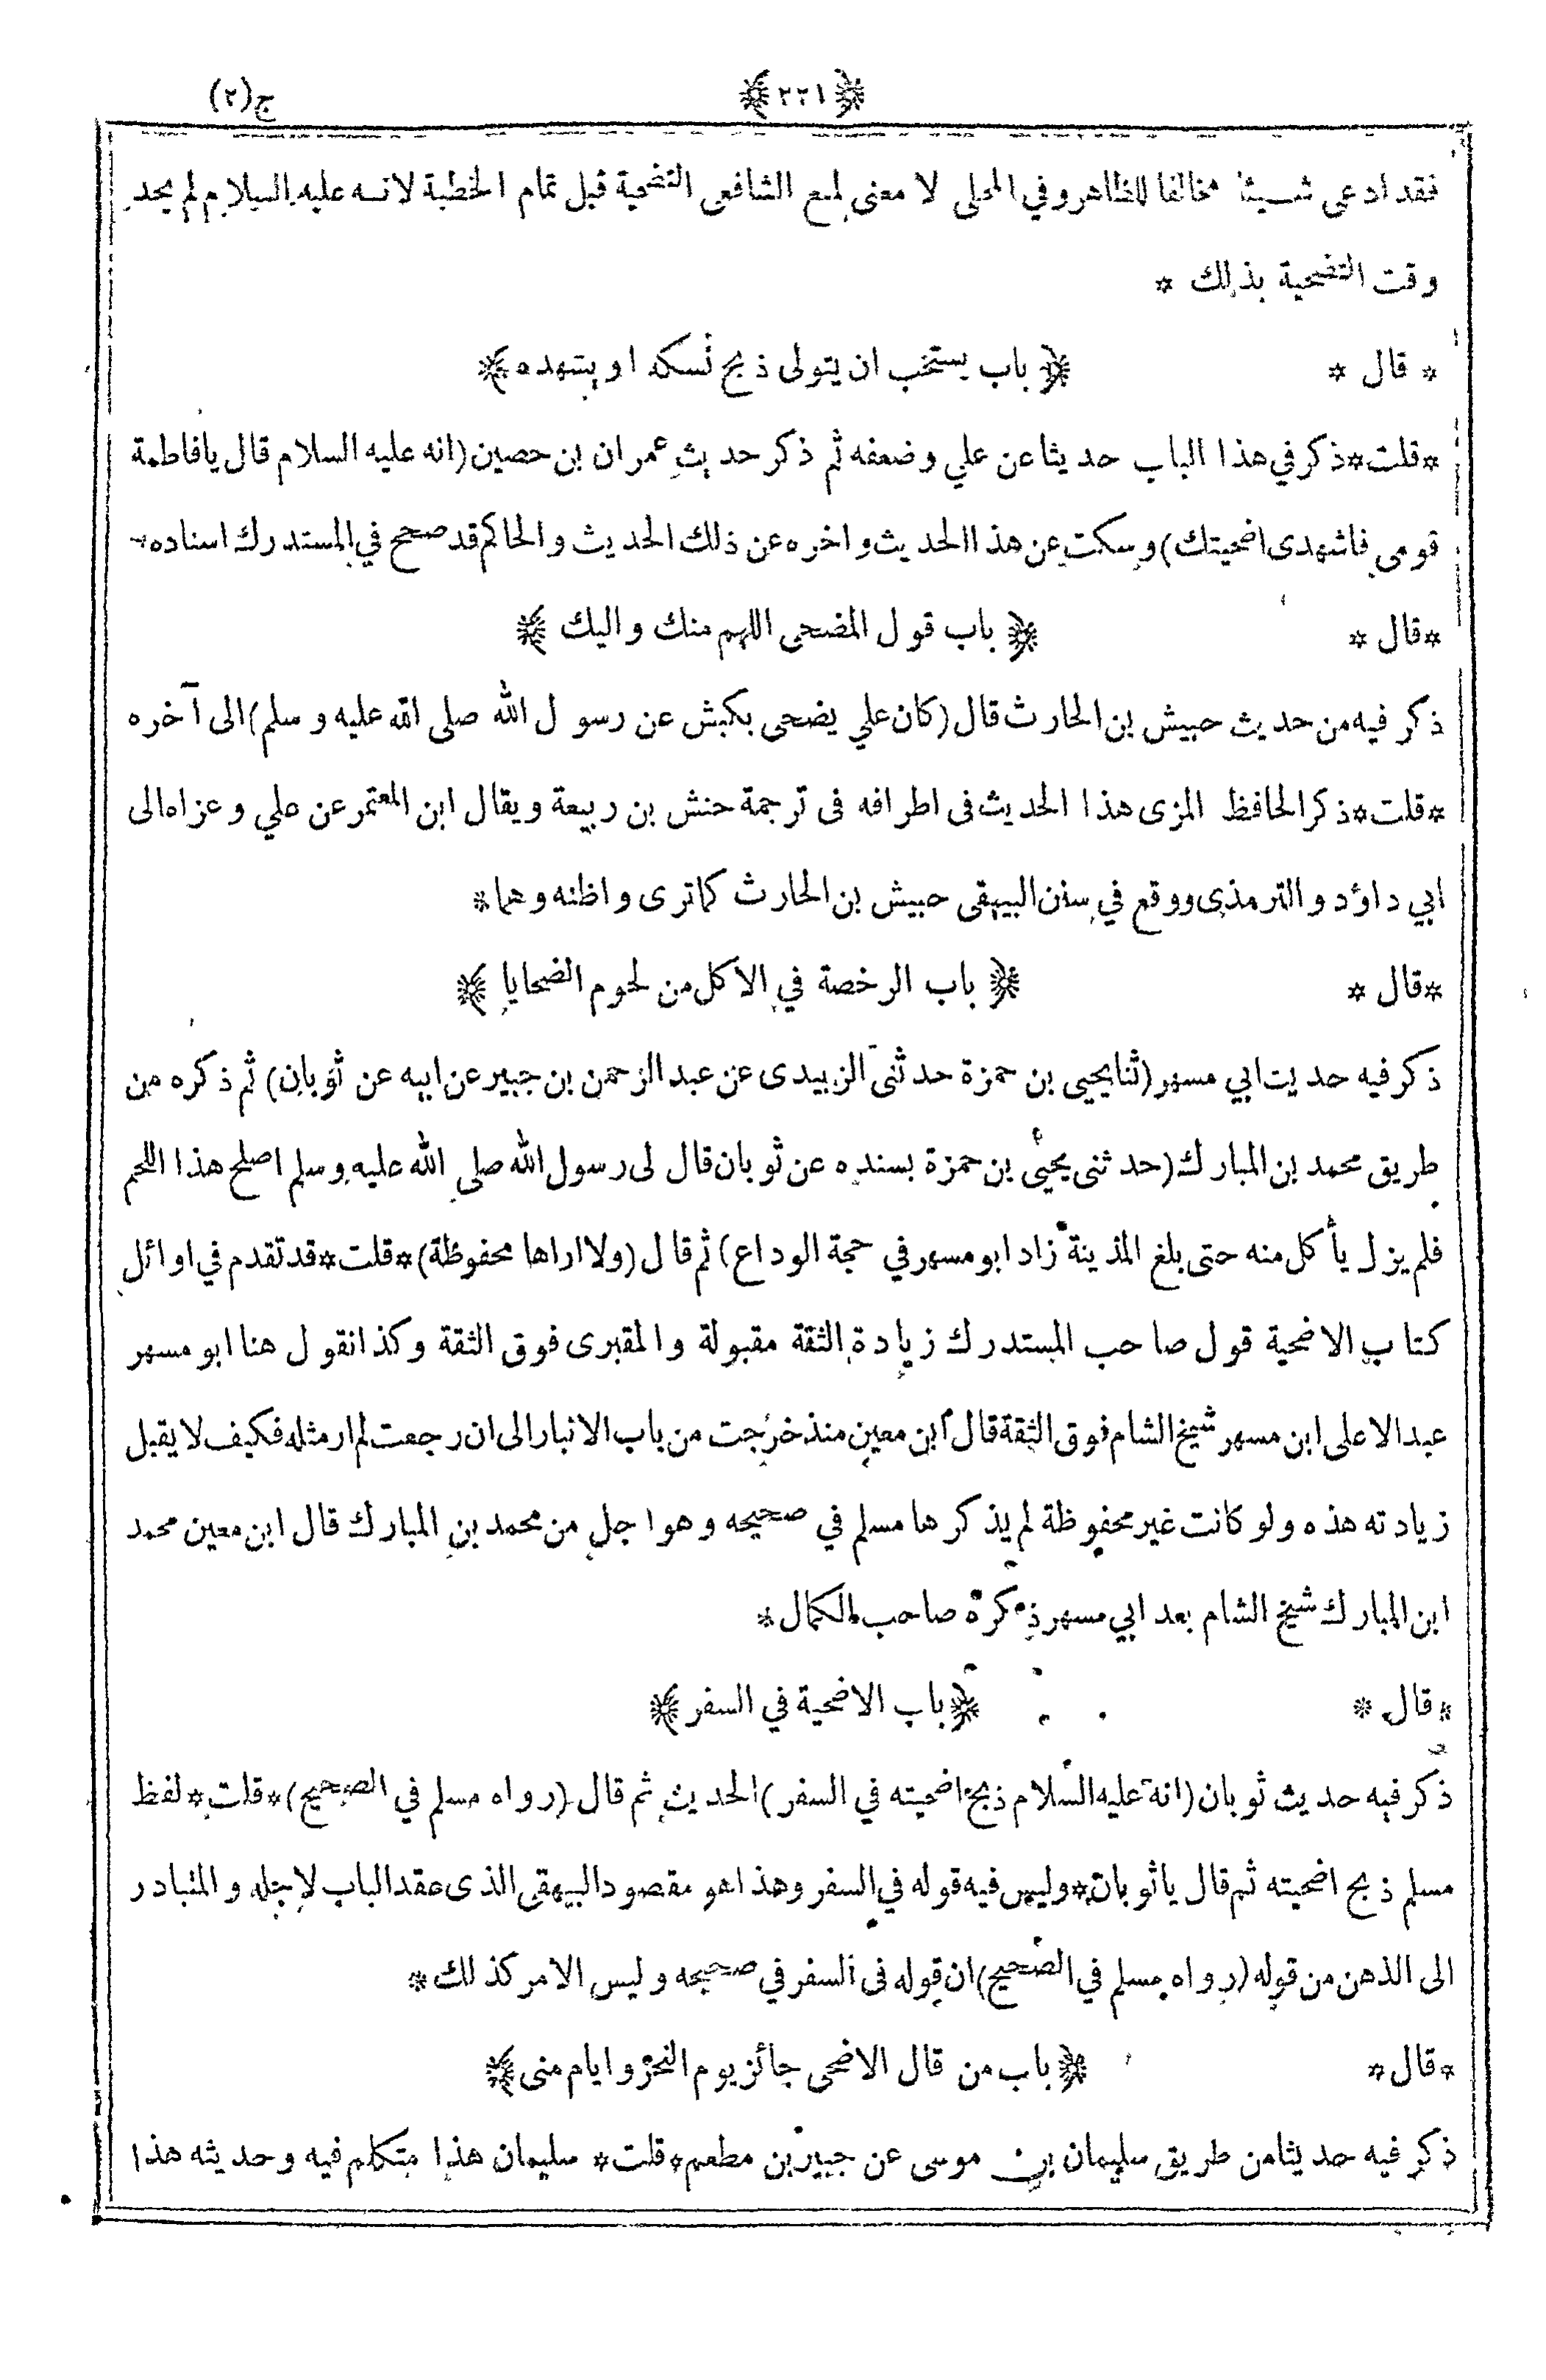 ﴿٢٢١﴾ ج(٢)
فقد ادعى شيئا مخالفا للظاهر وفي المحلى لا معنى لمنع الشافعى التضحية قبل تمام الخطبة لانه عليه السلام لم يحد
وقت التضحية بذلك *
* قال * ﴿ باب يستحب ان يتولى ذبح نسكه او يشهده ﴾
*قلت*ذكر في هذا الباب حديثا عن علي وضعفه ثم ذكر حديث عمران بن حصين (انه عليه السلام قال يا فاطمة
قومى فاشهدى اضحيتك) وسكت عن هذا الحديث واخره عن ذلك الحديث والحاكم قد صحح في المستدرك اسناده-
*قال * ﴿ باب قول المضحى اللهم منك واليك ﴾
ذكر فيه من حديث حبيش بن الحارث قال (كان علي يضحى بكبش عن رسول الله صلى الله عليه وسلم) الى آخره
*قلت*ذكر الحافظ المزى هذا الحديث فى اطرافه فى ترجمة حنش بن ربيعة ويقال ابن المعتمر عن علي وعزاه الى
ابي داؤد والترمذى ووقع في سنن البيهقى حبيش بن الحارث كما ترى واظنه وهما*
*قال * ﴿ باب الرخصة في الاكل من لحوم الضحايا ﴾
ذكر فيه حديث ابي مسهر (ثنا يحيى بن حمزة حدثنى الزبيدى عن عبد الرحمن بن جبير عن ابيه عن ثوبان) ثم ذكره من
طريق محمد بن المبارك (حدثنى يحيى بن حمزة بسنده عن ثوبان قال لى رسول الله صلى الله عليه وسلم اصلح هذا اللحم
فلم يزل يأكل منه حتى بلغ المدينة زاد ابو مسهر في حجة الوداع) ثم قال (ولا اراها محفوظة)*قلت*قد تقدم في اوائل
كتاب الاضحية قول صاحب المستدرك زيادة الثقة مقبولة والمقبرى فوق الثقة وكذا نقول هنا ابو مسهر
عبد الاعلى ابن مسهر شيخ الشام فوق الثقة قال ابن معين منذ خرجت من باب الانبار الى ان رجعت لم ار مثله فكيف لا يقبل
زيادته هذه ولو كانت غير محفوظة لم يذكرها مسلم في صحيحه وهو اجل من محمد بن المبارك قال ابن معين محمد
ابن المبارك شيخ الشام بعد ابي مسهر ذكره صاحب الكمال*
*قال * ﴿باب الاضحية في السفر﴾
ذكر فيه حديث ثوبان (انه عليه السلام ذبح اضحيته في السفر) الحديث ثم قال (رواه مسلم في الصحيح)*قلت*لفظ
مسلم ذبح اضحيته ثم قال يا ثوبان*وليس فيه قوله في السفر وهذا هو مقصود البيهقى الذى عقد الباب لاجله والمتبادر
الى الذهن من قوله (رواه مسلم في الصحيح) ان قوله فى السفر في صحيحه وليس الامر كذلك*
*قال* ﴿باب من قال الاضحى جائز يوم النحر وايام منى﴾
ذكر فيه حديثا من طريق سليمان بن موسى عن جبير بن مطعم*قلت* سليمان هذا متكلم فيه وحديثه هذا